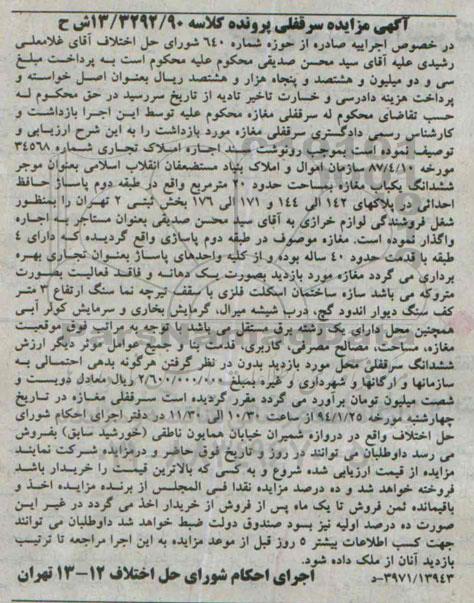 آگهی مزایده سرقفلی پرونده کلاسه ۱۳/۳۲۹۲/۹۰ش ح
در خصوص اجراییه صادره از حوزه شماره ۶۴۰ شورای حل اختلاف آقای غلامعلی
رشیدی علیه آقای سید محسن صدیقی محکوم علیه محکوم است به پرداخت مبلغ
سی و دو میلیون و هشتصد و پنجاه هزار و هشتصد ریال بعنوان اصل خواسته و
پرداخت هزینه دادرسی و خسارت تاخیر تادیه از تاریخ سررسید در حق محکوم له
حسب تقاضای محکوم له سرقفلی مغازه محکوم علیه توسط این اجرا بازداشت و
کارشناس رسمی دادگستری سرقفلی مغازه مورد بازداشت را به این شرح ارزیابی و
توصیف نموده است بموجب رونوشت سند اجاره املاک تجاری شماره ۳۴۵۶۸
مورخه ۸۷/۴/۱۰ سازمان اموال و املاک بنیاد مستضعفان انقلاب اسلامی بعنوان موجر
ششدانگ یکباب مغازه بمساحت حدود ۲۰ مترمربع واقع در طبقه دوم پاساژ حافظ
احداثی در پلاکهای ۱۴۲ الی ۱۴۴ و ۱۷۱ الی ۱۷۶ بخش ثبتی ۲ تهران را بمنظور
شغل فروشندگی لوازم خرازی به آقای سید محسن صدیقی بعنوان مستاجر به اجاره
واگذار نموده است. مغازه موصوف در طبقه دوم پاساژی واقع گردیده که دارای ۴
طبقه با قدمت حدود ۴۰ ساله بوده و از کلیه واحدهای پاساژ بعنوان تجاری بهره
برداری می گردد مغازه مورد بازدید بصورت یک دهانه و فاقد فعالیت بصورت
متروکه می باشد سازه ساختمان اسکلت فلزی با سقف تیرچه نما سنگ ارتفاع ۳ متر
کف سنگ دیوار اندود گچ، درب شیشه میرال، گرمایش بخاری و سرمایش کولر آبی
همچنین محل دارای یک رشته برق مستقل می باشد با توجه به مراتب فوق موقعیت
مغازه، مساحت، مصالح مصرفی، کاربری، قدمت بنا و جمیع عوامل موثر دیگر ارزش
ششدانگ سرقفلی محل مورد بازدید بدون در نظر گرفتن هرگونه بدهی احتمالی به
سازمانها و ارگانها و شهرداری و غیره بمبلغ ۲/۶۰۰/۰۰۰/۰۰۰ ریال معادل دویست و
شصت میلیون تومان برآورد می گردد مقرر گردیده است سرقفلی مغازه در تاریخ
چهارشنبه مورخه ۹۴/۱/۲۵ از ساعت ۱۰/۳۰ الی ۱۱/۳۰ در دفتر اجرای احکام شورای
حل اختلاف واقع در دروازه شمیران خیابان همایون ناطقی (خورشید سابق) بفروش
می رسد داوطلبان می توانند در روز و تاریخ فوق حاضر و درمزایده شرکت نمایند
مزایده از قیمت ارزیابی شده شروع و به کسی که بالاترین قیمت را خریدار باشد
فروخته خواهد شد و ده درصد مزایده نقدا فی المجلس از برنده مزایده اخذ و
باقیمانده ثمن فروش تا یک ماه پس از فروش از خریدار اخذ می گردد در غیر این
صورت ده درصد اولیه نیز بسود صندوق دولت ضبط خواهد شد داوطلبان می توانند
جهت کسب اطلاعات بیشتر ۵ روز قبل از موعد مزایده به این اجرا مراجعه تا ترتیب
بازدید آنان از ملک داده شود.
۳۹۷۱/۱۳۹۴۳-د اجرای احکام شورای حل اختلاف ۱۲-۱۳ تهران